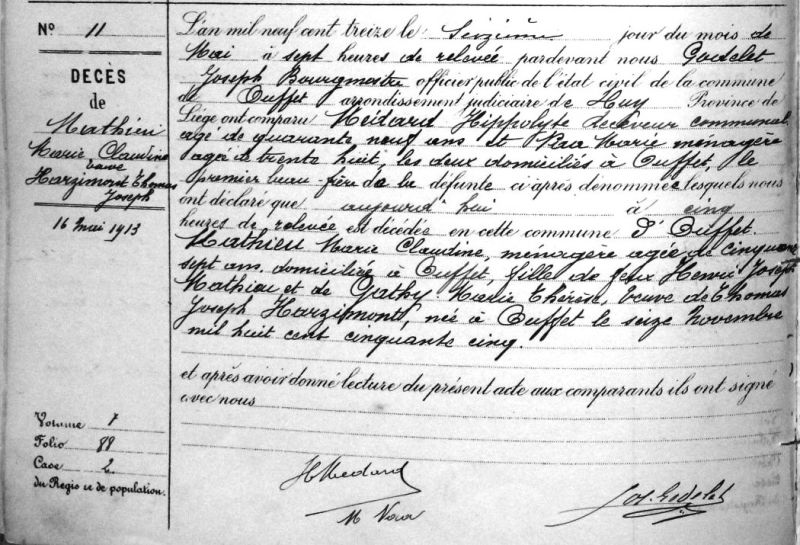 N° 11
DECÈS
de
Mathieu
Marie Claudine
veuve
Harzimont Thomas
Joseph
16 mai 1913
Volume 7
Folio 88
Case 2
du Regis re de population.
L'an mil neuf cent treize le Seizième jour du mois de
Mai à sept heures de relevée pardevant nous Godelet
Joseph Bourgmestre officier public de l'état civil de la commune
de Ouffet arrondissement judiciaire de Huy Province de
Liége ont comparu Médard Hippolyte Receveur communal
agé de quarante neuf ans et Marie ménagère
agée de trente huit, les deux domiciliés à Ouffet, le
premier beau-frère de la défunte ci après dénommée lesquels nous
ont déclaré que aujourd'hui à cinq
heures de relevée est décédée en cette commune d'Ouffet.
Mathieu Marie Claudine, ménagère agée de cinquante
sept ans. domiciliée à Ouffet, fille de feux Henri Joseph
Mathieu et de Gathy Marie Thérèse, Veuve de Thomas
Joseph Harzimont, née à Ouffet le seize Novembre
mil huit cent cinquante cinq.
et après avoir donné lecture du présent acte aux comparants ils ont signé
avec nous
H Médard
Jos. Godelet